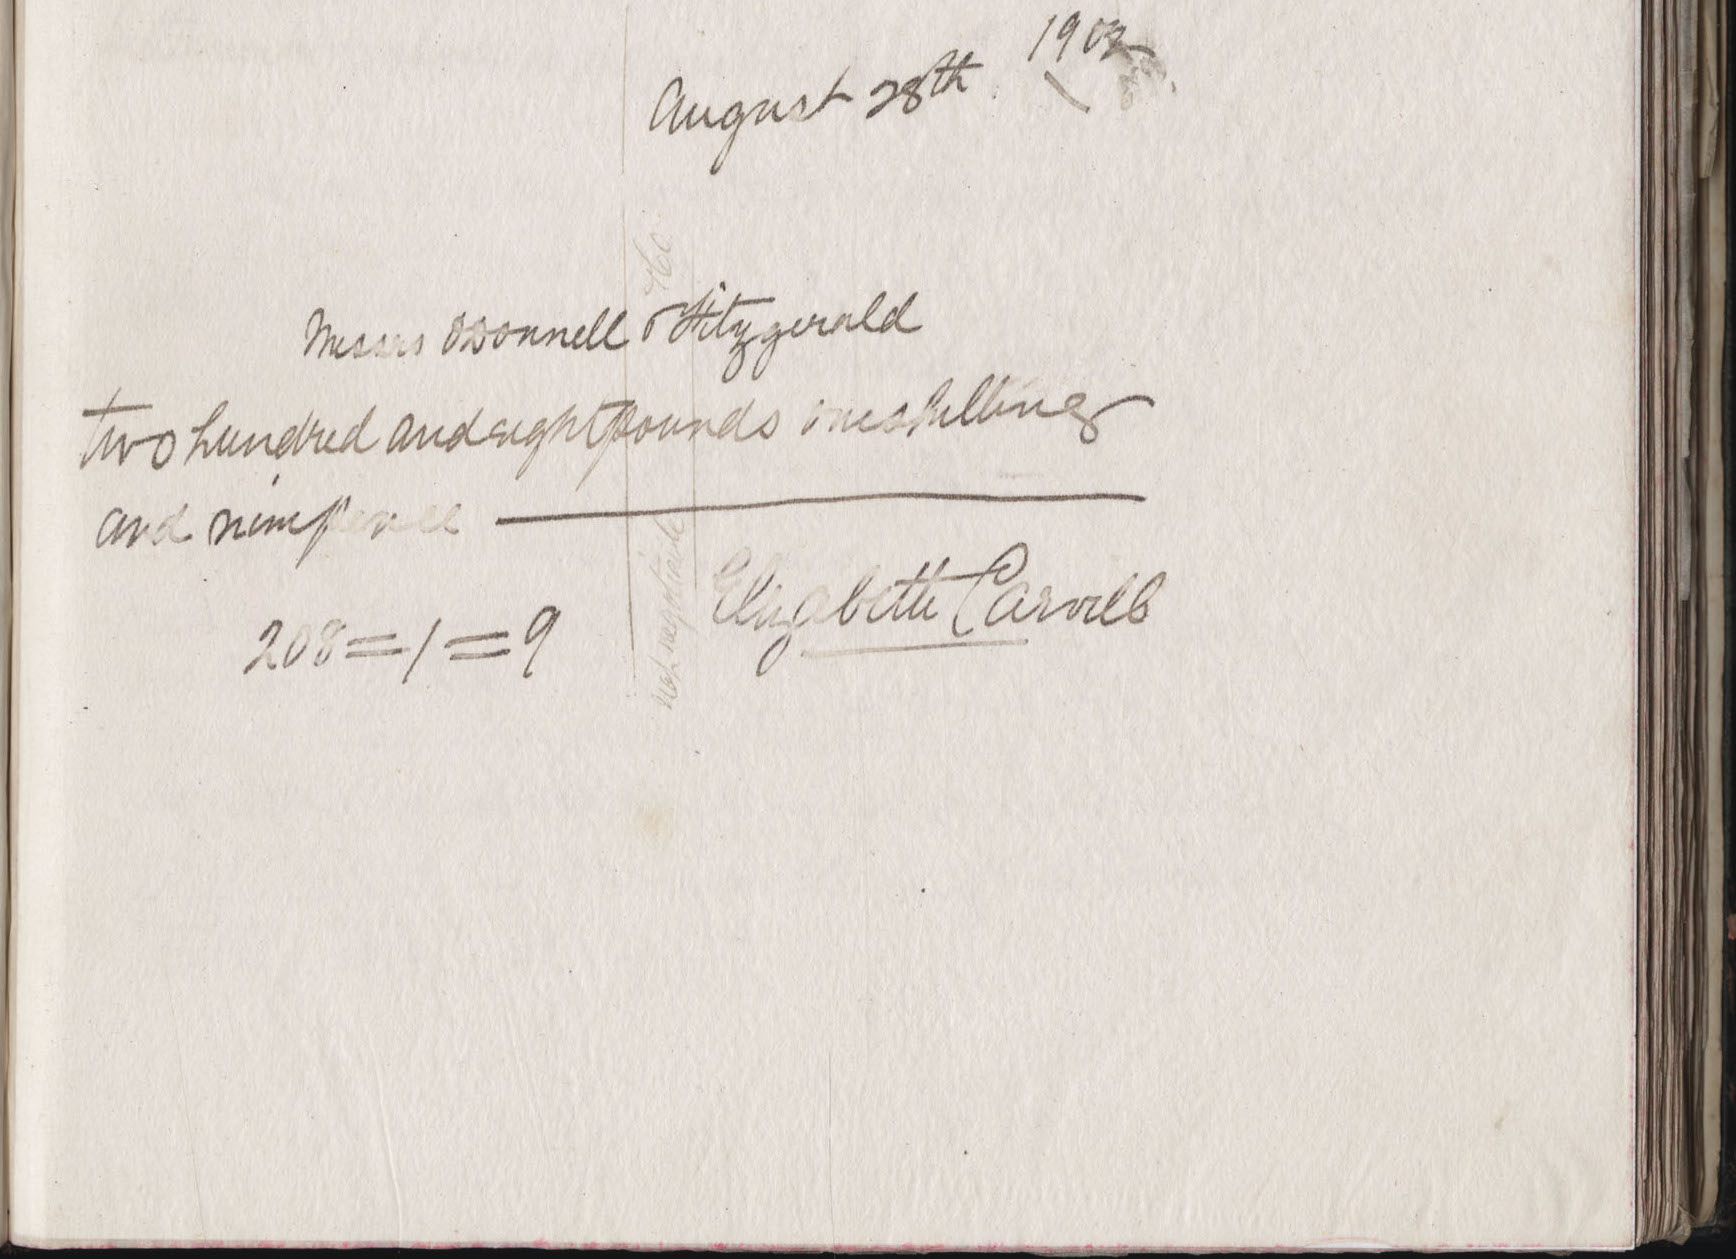 August 28th 1903
Messrs O'Donnell & Fitzgerald
two hundred and eight pounds one shilling
and ninepence
Elizabeth Carvill
208=1=9
not negotiable
& Co